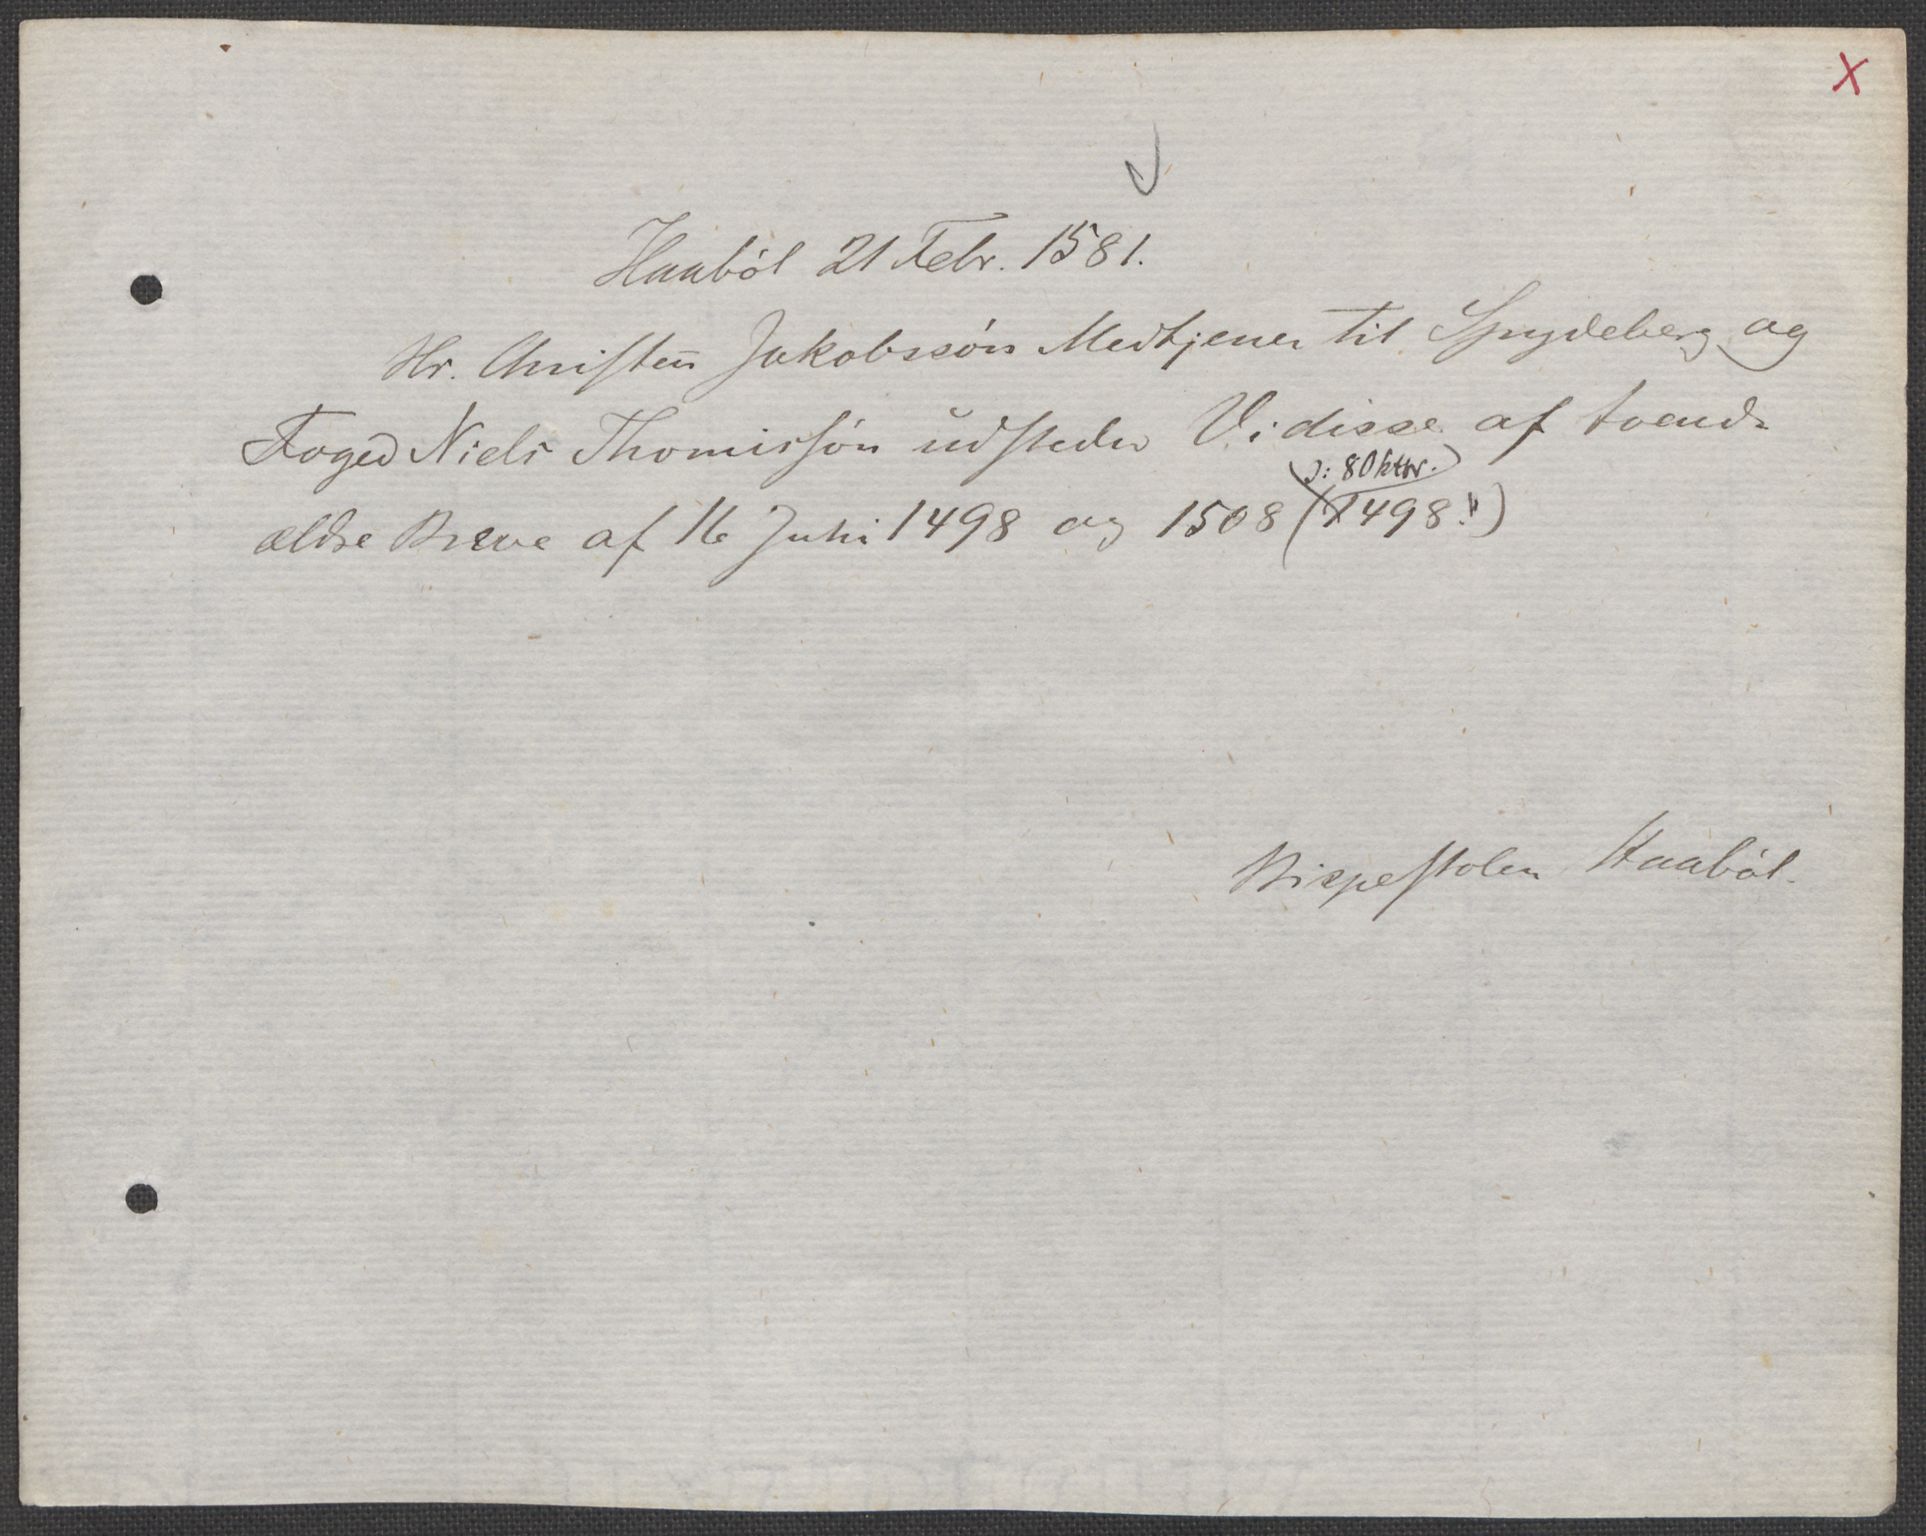 X
Haaböl 21 Febr. 1581.
Hr. Christen Jakobssön Medtjener til Spydeberg og
Foged Niels Thomissön udsteder Vidisse af tvende
ɔ: 8 Oktbr.
ældre Breve af 16 Juni 1498 og 1508 (1498!!)
Bispestolen Haaböl.